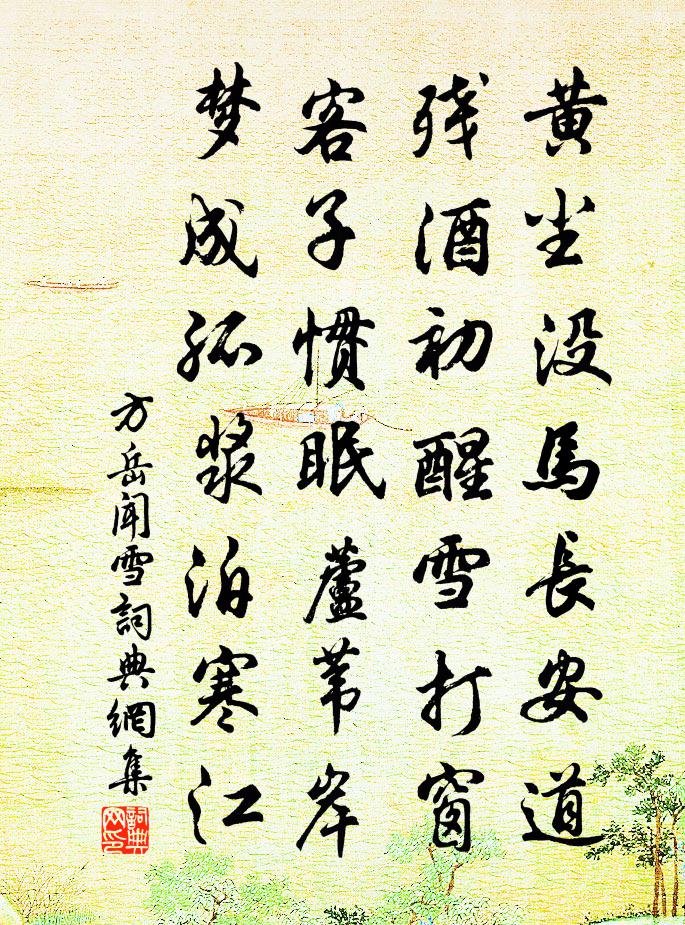 黄尘没馬長安道
残酒初醒雪打窗
客子慣眠蘆苇岸
梦成孤浆泊寒江
方岳闻雪詞典網集
詞典网印